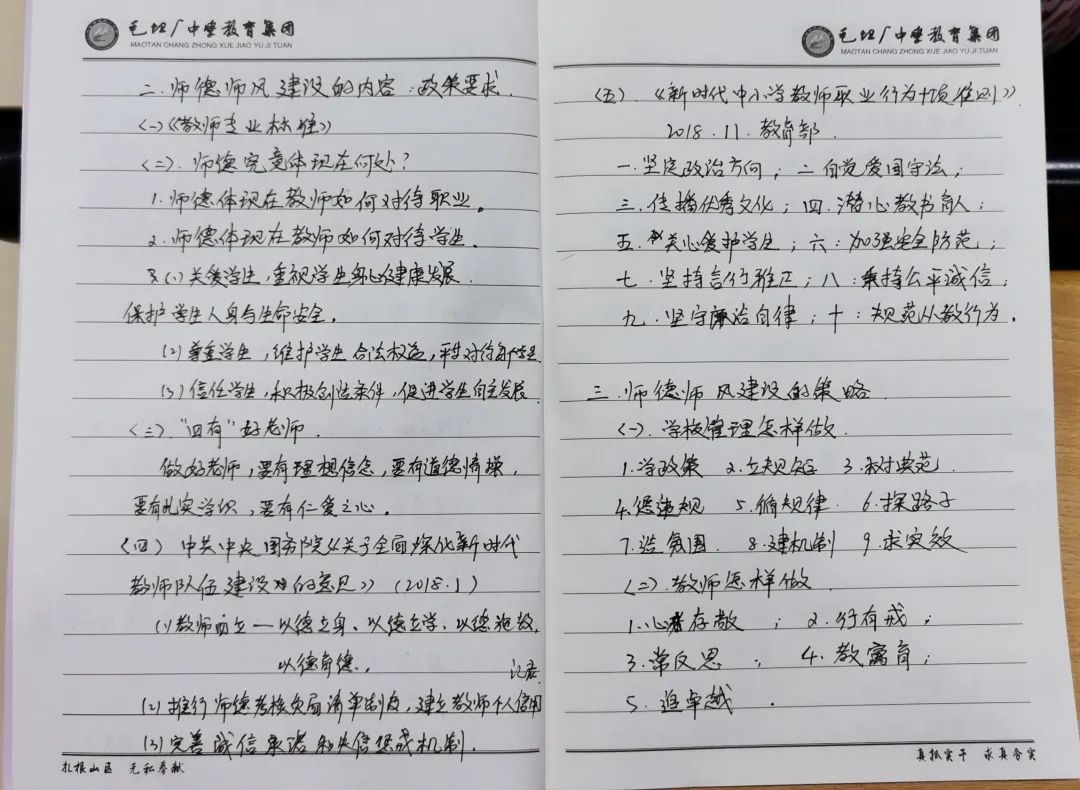 毛坦厂中学教育集团
MAOTAN CHANG ZHONG XUE JIAO YU JI TUAN
二.师德师风建设的内容:政策要求.
<一>《教师专业标准》
<二>.师德究竟体现在何处?
1.师德体现在教师如何对待职业。
2.师德体现在教师如何对待学生.
(1)关爱学生,重视学生身心健康发展.
保护学生人身与生命安全.
(2)尊重学生,维护学生合法权益,平等对待每个学生
(3)信任学生,积极创造条件,促进学生自主发展
<三>."四有"好老师.
做好老师,要有理想信念,要有道德情操,
要有扎实学识,要有仁爱之心.
<四>中共中央国务院《关于全面深化新时代
教师队伍建设的意见》(2018.1)
(1)教师而立—以德立身、以德立学、以德施教,
以德育德.
(2)推行师德考核负面清单制度,建立教师个人信用
记录
(3)完善诚信承诺和失信惩戒机制.
扎根山区 无私奉献
毛坦厂中学教育集团
MAOTAN CHANG ZHONG XUE JIAO YU JI TUAN
<五>.《新时代中小学教师职业行为十项准则》
2018.11.教育部.
一.坚定政治方向;二自觉爱国守法;
三.传播优秀文化;四.潜心教书育人;
五.关心爱护学生;六:加强安全防范;
七.坚持言行雅正;八:秉持公平诚信;
九.坚守廉洁自律;十:规范从教行为.
三.师德师风建设的策略
<一>.学校管理怎样做.
1.学政策 2.立规矩 3.树典范.
4.惩违规 5.循规律 6.探路子
7.造氛围. 8.建机制 9.求实效
<二>.教师怎样做.
1.心存敬; 2.行有戒;
3.常反思; 4.教寓育;
5.追卓越.
真抓实干 求真务实